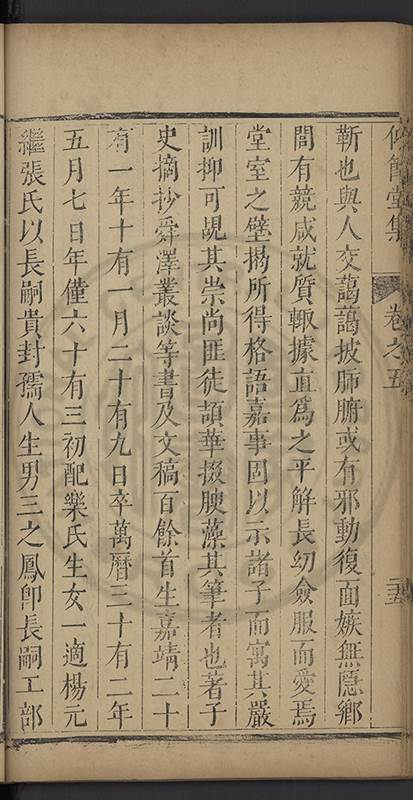 修館堂集 卷之五 五
靳也與人交藹藹披肺腑或有邪動復面嫉無隱鄉
閭有競咸就質輙據直爲之平解長幼僉服而愛焉
堂室之壁揭所得格語嘉事固以示諸子而寓其嚴
訓抑可覘其崇尚匪徒頡華掇腴藻其筆者也著子
史摘抄舜澤叢談等書及文稿百餘首生嘉靖二十
有一年十有一月二十有九日卒萬曆三十有二年
五月七日年僅六十有三初配樂氏生女一適楊元
繼張氏以長嗣貴封孺人生男三之鳳卽長嗣工部